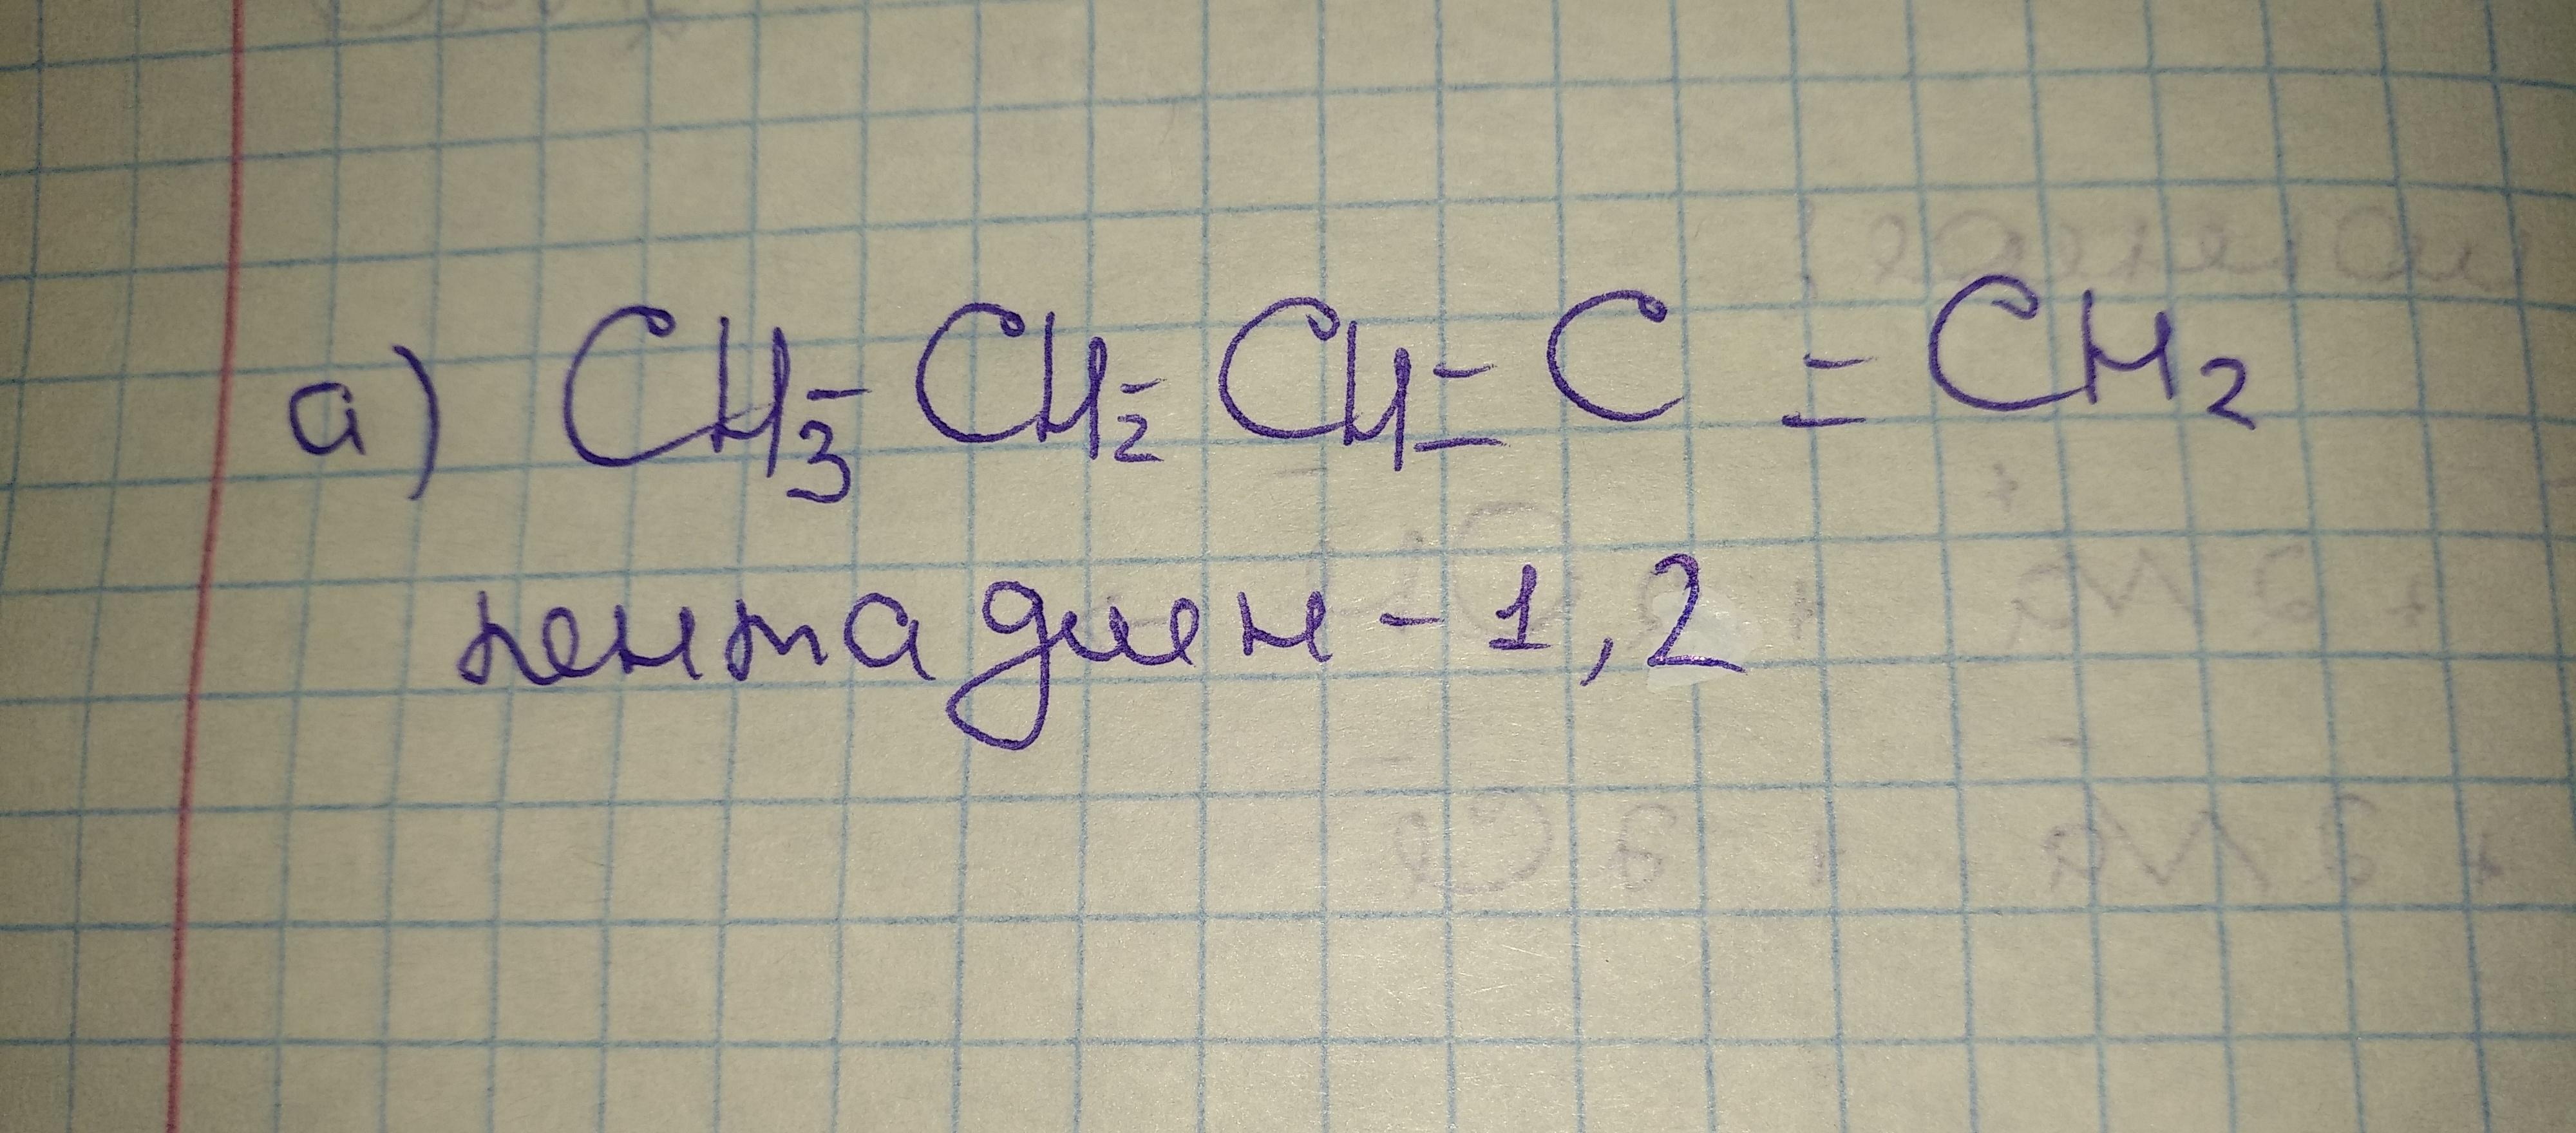 а) CH₃-CH₂-CH=C=CH₂
пентадиен-1,2